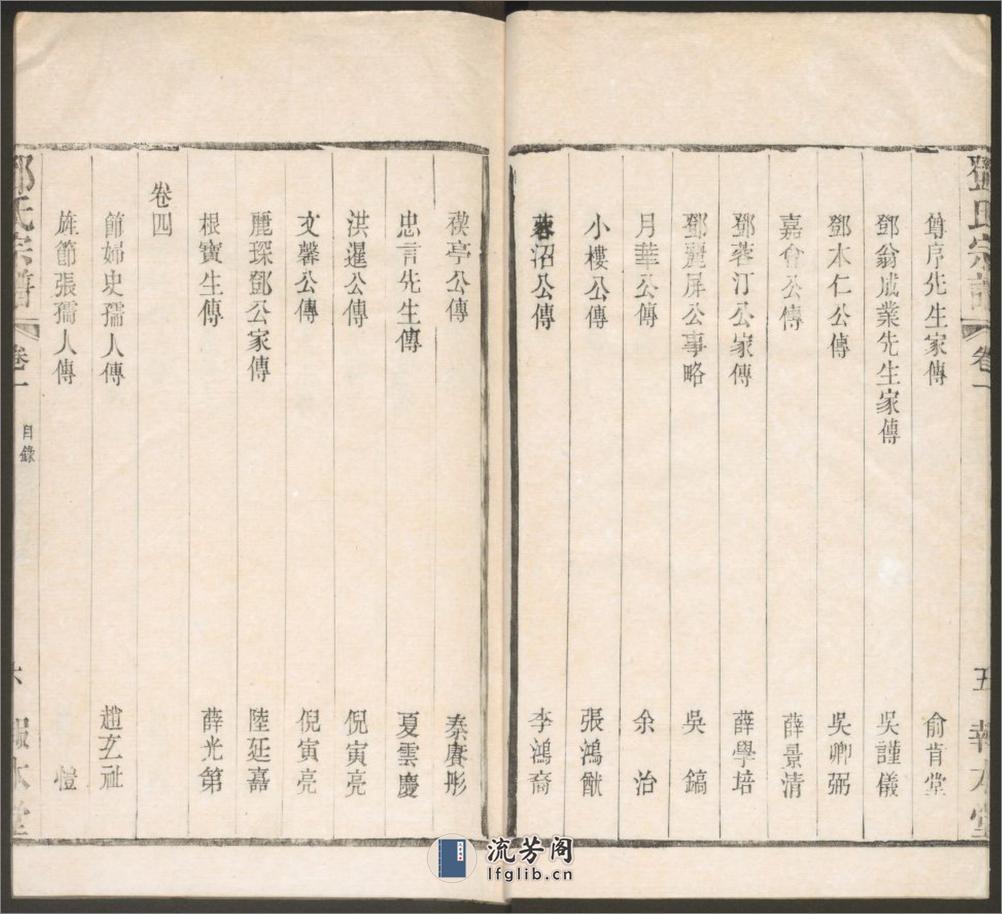 鄧氏宗譜 卷一 五 報本堂
尊序先生家傳 俞肯堂
鄧翁成業先生家傳 吳謹儀
鄧木仁公傳 吳卿弼
嘉會公傳 薛景清
鄧蓉汀公家傳 薛學培
鄧麗屏公事略 吳鎬
月華公傳 余治
小樓公傳 張鴻猷
蓉沼公傳 李鴻裔
稧亭公傳 秦賡彤
忠言先生傳 夏雲慶
洪暹公傳 倪寅亮
文馨公傳 倪寅亮
麗琛鄧公家傳 陸延嘉
根寶生傳 薛光第
卷四
節婦史孺人傳 趙玄祉
旌節張孺人傳 愷
鄧氏宗譜 卷一 目錄 六 報本堂
流芳阁
lfglib.cn